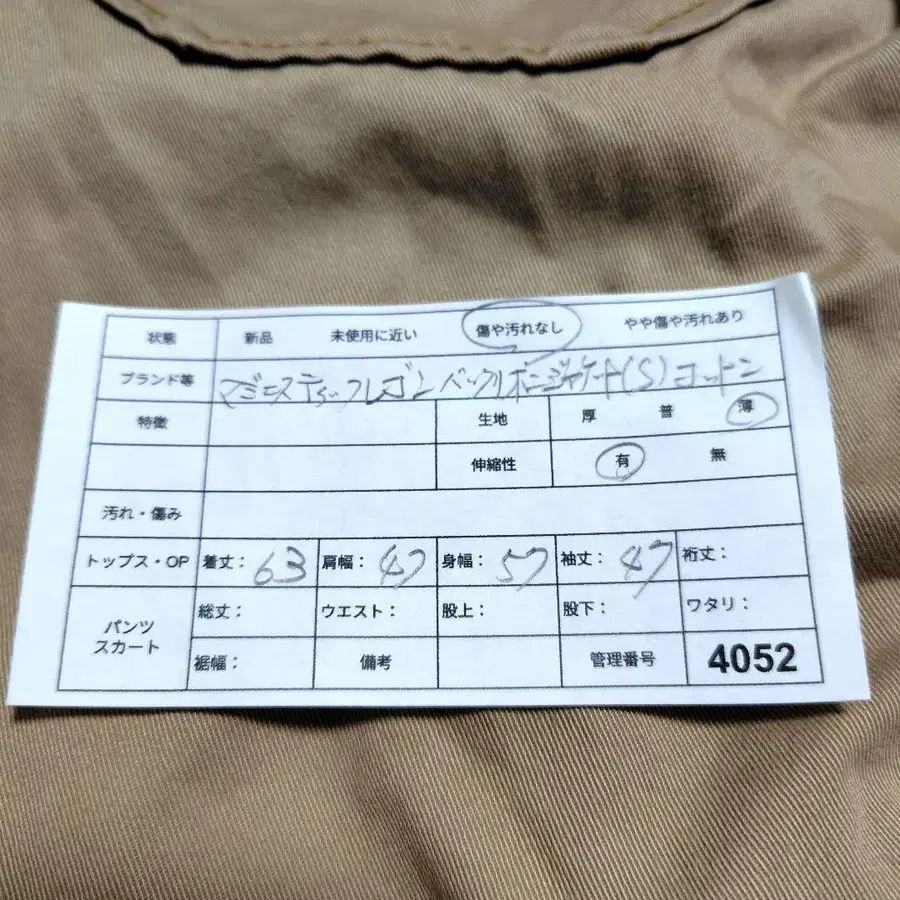 状態 新品 未使用に近い 傷や汚れなし やや傷や汚れあり
ブランド等 マジェスティックレゴン バックリボンジャケット(S) コットン
特徴 生地 厚 普 薄
伸縮性 有 無
汚れ・傷み
トップス・OP 着丈:63 肩幅:47 身幅:57 袖丈:47 裄丈:
パンツ スカート 総丈: ウエスト: 股上: 股下: ワタリ:
裾幅: 備考 管理番号 4052